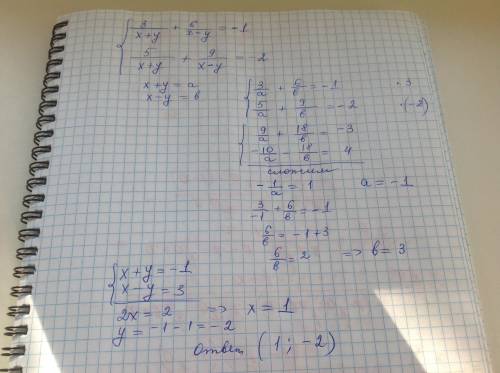 { 3/(x+y) + 6/(x-y) = -1
5/(x+y) + 9/(x-y) = -2
x+y = a
x-y = в
{ 3/a + 6/в = -1 ·3
5/a + 9/в = -2 ·(-2)
{ 9/a + 18/в = -3
-10/a - 18/в = 4
сложим
-1/a = 1 a = -1
3/-1 + 6/в = -1
6/в = -1+3
6/в = 2 => в = 3
{ x+y = -1
x-y = 3
2x = 2 => x = 1
y = -1-1 = -2
Ответ (1; -2)